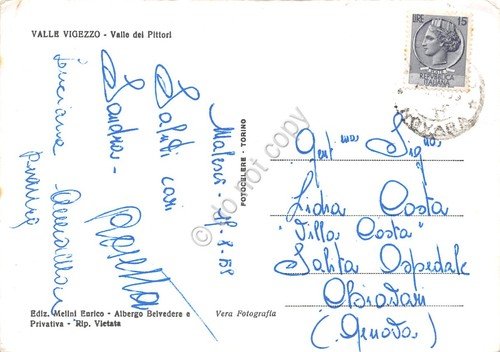 VALLE VIGEZZO - Valle dei Pittori
LIRE 15
REPUBBLICA
ITALIANA
NOVARA
Malesco
Saluti cari
Sandra -
Luciana
FOTOCELERE - TORINO
do not copy
Gent.ma Sig.na
Lidia Costa
"Villa Costa"
Salita Ospedale
Chiavari
(Genova)
Ediz. Mellni Enrico - Albergo Belvedere e
Privativa - Rip. Vietata
Vera Fotografia